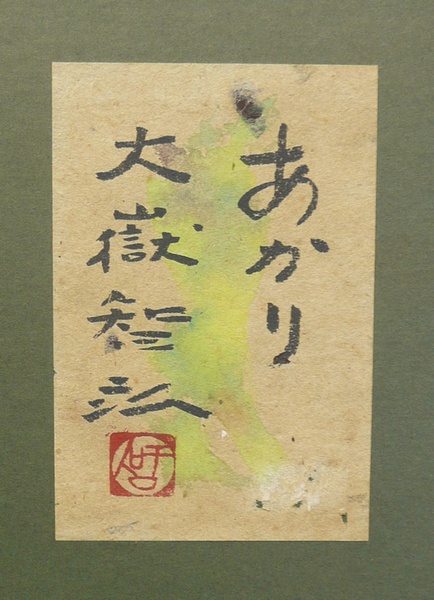 あかり
大嶽智弘